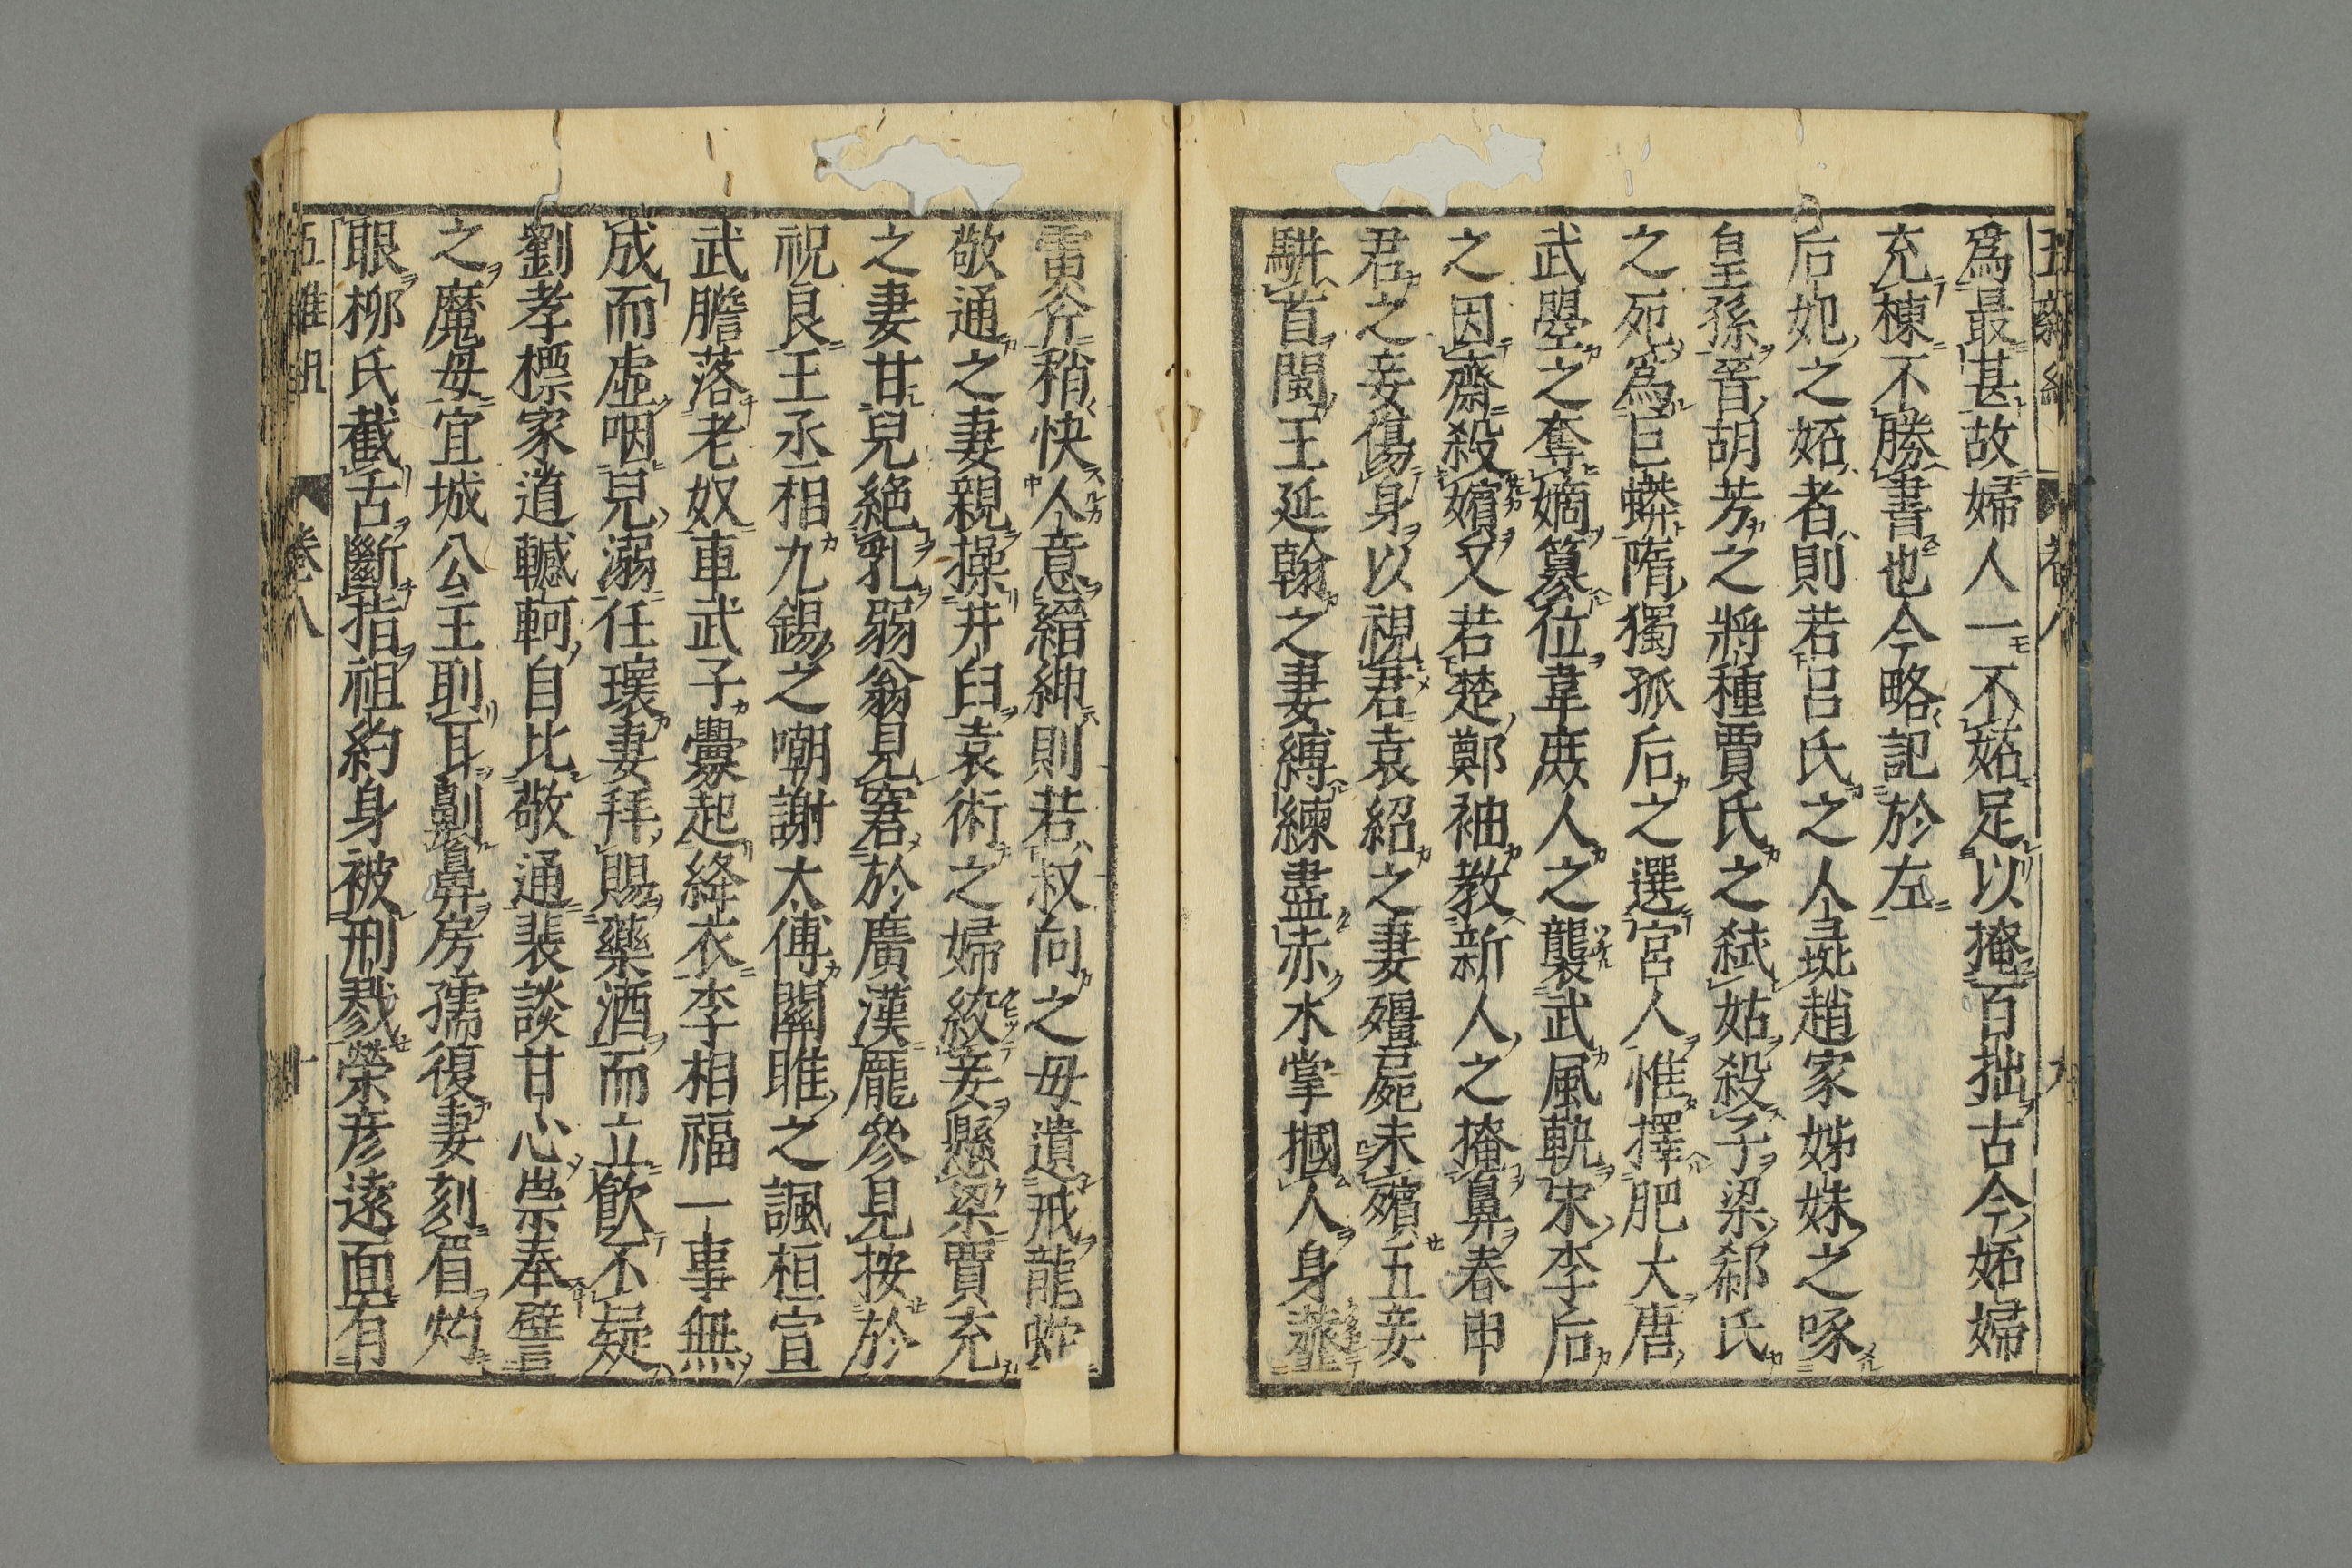 爲最甚故婦人一不妬足以掩百拙古今妬婦
充棟不勝書也今略記於左
后妃之妬者則若呂氏之人彘趙家姊妹之啄
皇孫晉胡芳之將種賈氏之弑姑殺子梁郗氏
之死爲巨蟒隋獨孤后之選宮人惟擇肥大唐
武曌之奪嫡簒位韋庻人之襲武風軌宋李后
之因齋殺嬪又若楚鄭袖教新人之掩鼻春申
君之妾傷身以視君袁紹之妻殭屍未殯五妾
駢首閩王延翰之妻縛練盡赤木掌摑人身
雷斧稍快人意縉紳則若叔向之母遺戒龍蛇
敬通之妻親操井臼袁術之婦絞妾懸梁賈充
之妻甘兒絶乳弱翁見窘於廣漢龐參見按於
祝良王丞相九錫之嘲謝太傅關雎之諷桓宣
武膽落老奴車武子釁起絳衣李相福一事無
成而虛咽兒溺任瓌妻拜賜藥酒而立飲不疑
劉孝標家道轗軻自比敬通裴談甘心崇奉譬
之魔母宜城公主刵耳劓鼻房孺復妻刻眉灼
眼柳氏截舌斷指祖約身被刑戮榮彦遠面有
卷八